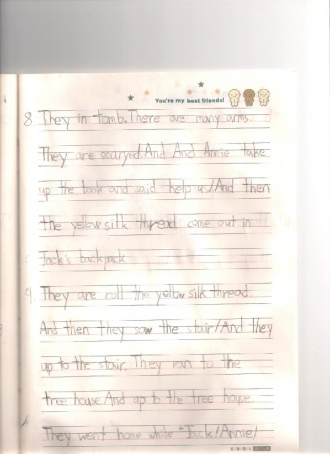 You're my best friends!
8. They in tomb. There are many arms.
They are scaryed. And And Annie take
up the book and said help us! And then
the yellow silk thread come out in
Jack's backpack
9. They are call the yellow silk thread.
And then they saw the stair! And they
up to the stair. They ran to the
tree house. And up to the tree house.
They went home while "Jack! Annie!